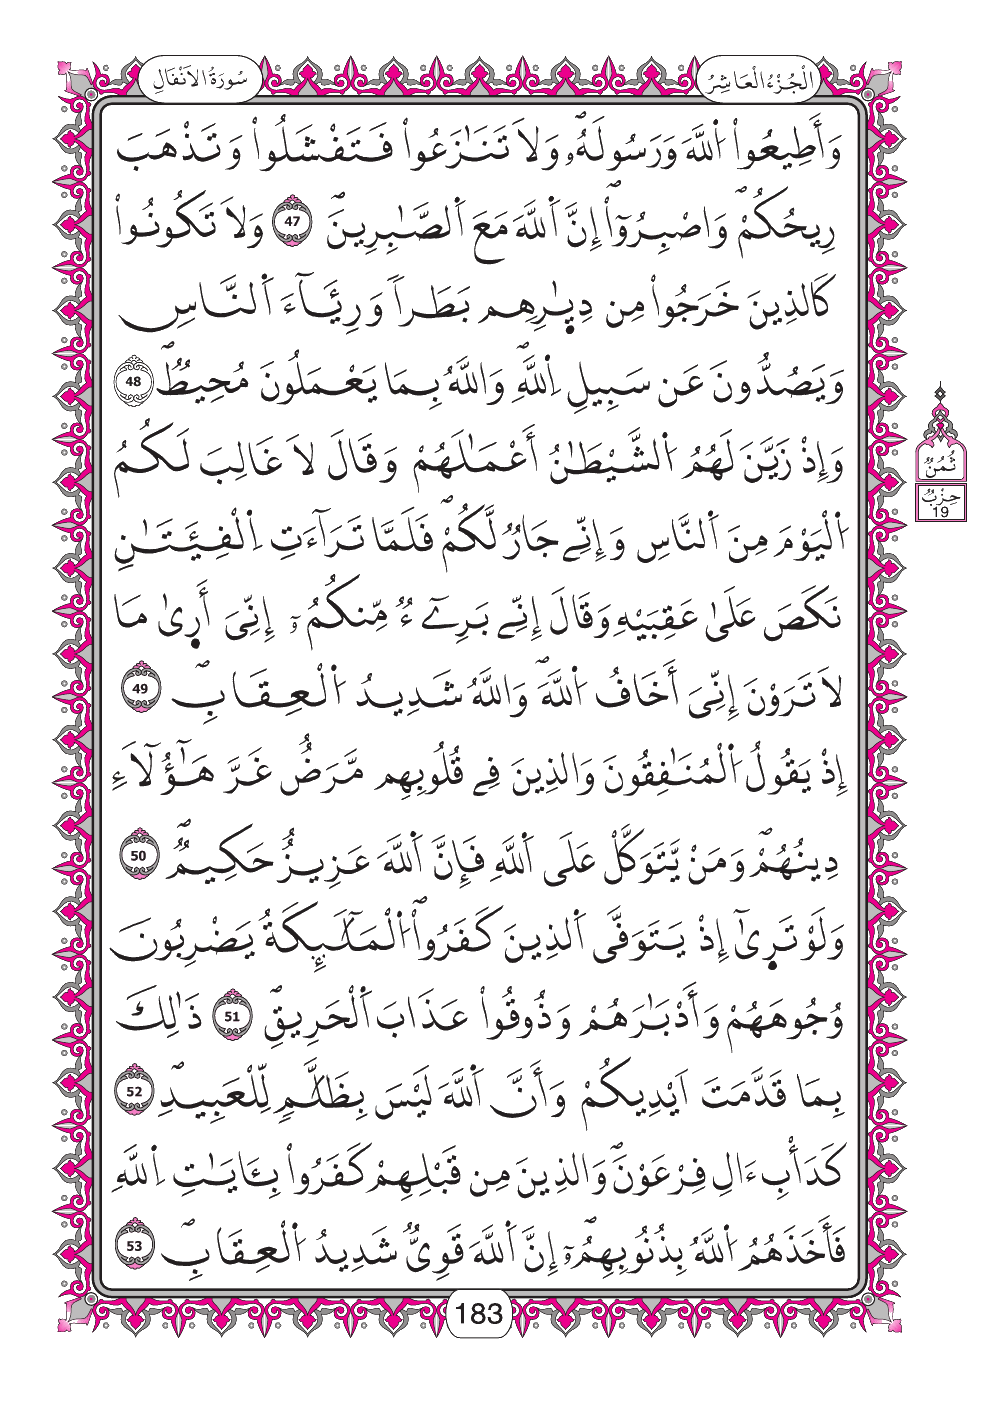 الْجُزْءُ الْعَاشِرُ
سُورَةُ الاَنْفَالِ
وَأَطِيعُواْ اُ۬للَّهَ وَرَسُولَهُۥۖ وَلَا تَنَٰزَعُواْ فَتَفْشَلُواْ وَتَذْهَبَ
رِيحُكُمْۖ وَاصْبِرُوٓاْۖ إِنَّ اَ۬للَّهَ مَعَ اَ۬لصَّٰبِرِينَۖ 47 وَلَا تَكُونُواْ
كَالذِينَ خَرَجُواْ مِن دِيٰ۪رِهِم بَطَراٗ وَرِئَآءَ اَ۬لنَّاسِ
وَيَصُدُّونَ عَن سَبِيلِ اِ۬للَّهِۖ وَاللَّهُ بِمَا يَعْمَلُونَ مُحِيطٞۖ 48
وَإِذْ زَيَّنَ لَهُمُ اُ۬لشَّيْطَٰنُ أَعْمَٰلَهُمْ وَقَالَ لَا غَالِبَ لَكُمُ
اُ۬لْيَوْمَ مِنَ اَ۬لنَّاسِ وَإِنِّے جَارٞ لَّكُمْۖ فَلَمَّا تَرَآءَتِ اِ۬لْفِئَتَٰنِ
نَكَصَ عَلَىٰ عَقِبَيْهِ وَقَالَ إِنِّے بَرِےٓءٞ مِّنكُمُۥٓ إِنِّيَ أَر۪ىٰ مَا
لَا تَرَوْنَ إِنِّيَ أَخَافُ اُ۬للَّهَۖ وَاللَّهُ شَدِيدُ اُ۬لْعِقَابِۖ 49
إِذْ يَقُولُ اُ۬لْمُنَٰفِقُونَ وَالذِينَ فِے قُلُوبِهِم مَّرَضٌ غَرَّ هَٰٓؤُلَآءِ
دِينُهُمْۖ وَمَنْ يَّتَوَكَّلْ عَلَى اَ۬للَّهِ فَإِنَّ اَ۬للَّهَ عَزِيزٌ حَكِيمٞۖ 50
وَلَوْ تَر۪ىٰٓ إِذْ يَتَوَفَّى اَ۬لذِينَ كَفَرُواْۖ اُ۬لْمَلَٰٓئِكَةُ يَضْرِبُونَ
وُجُوهَهُمْ وَأَدْبَٰرَهُمْ وَذُوقُواْ عَذَابَ اَ۬لْحَرِيقِۖ 51 ذَٰلِكَ
بِمَا قَدَّمَتَ اَيْدِيكُمْ وَأَنَّ اَ۬للَّهَ لَيْسَ بِظَلَّٰمٖ لِّلْعَبِيدِۖ 52
كَدَأْبِ ءَالِ فِرْعَوْنَۖ وَالذِينَ مِن قَبْلِهِمْ كَفَرُواْ بِـَٔايَٰتِ اِ۬للَّهِ
فَأَخَذَهُمُ اُ۬للَّهُ بِذُنُوبِهِمُۥٓۖ إِنَّ اَ۬للَّهَ قَوِيّٞ شَدِيدُ اُ۬لْعِقَابِۖ 53
ثُمُنٌ
حِزْبٌ
19
183